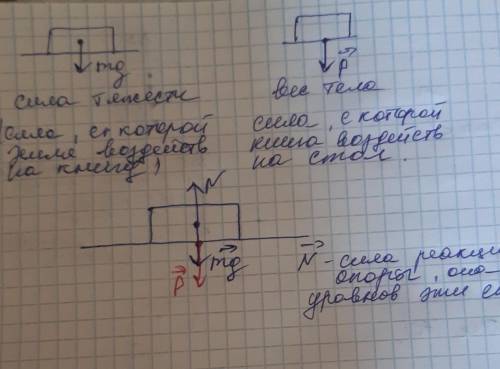 mg
P
сила тяжести
вес тела
(сила, с которой
Земля воздейств
на книгу)
сила, с которой
книга воздейств
на стол.
N
mg
P
N - сила реакци
опоры, она
уравнов эти си